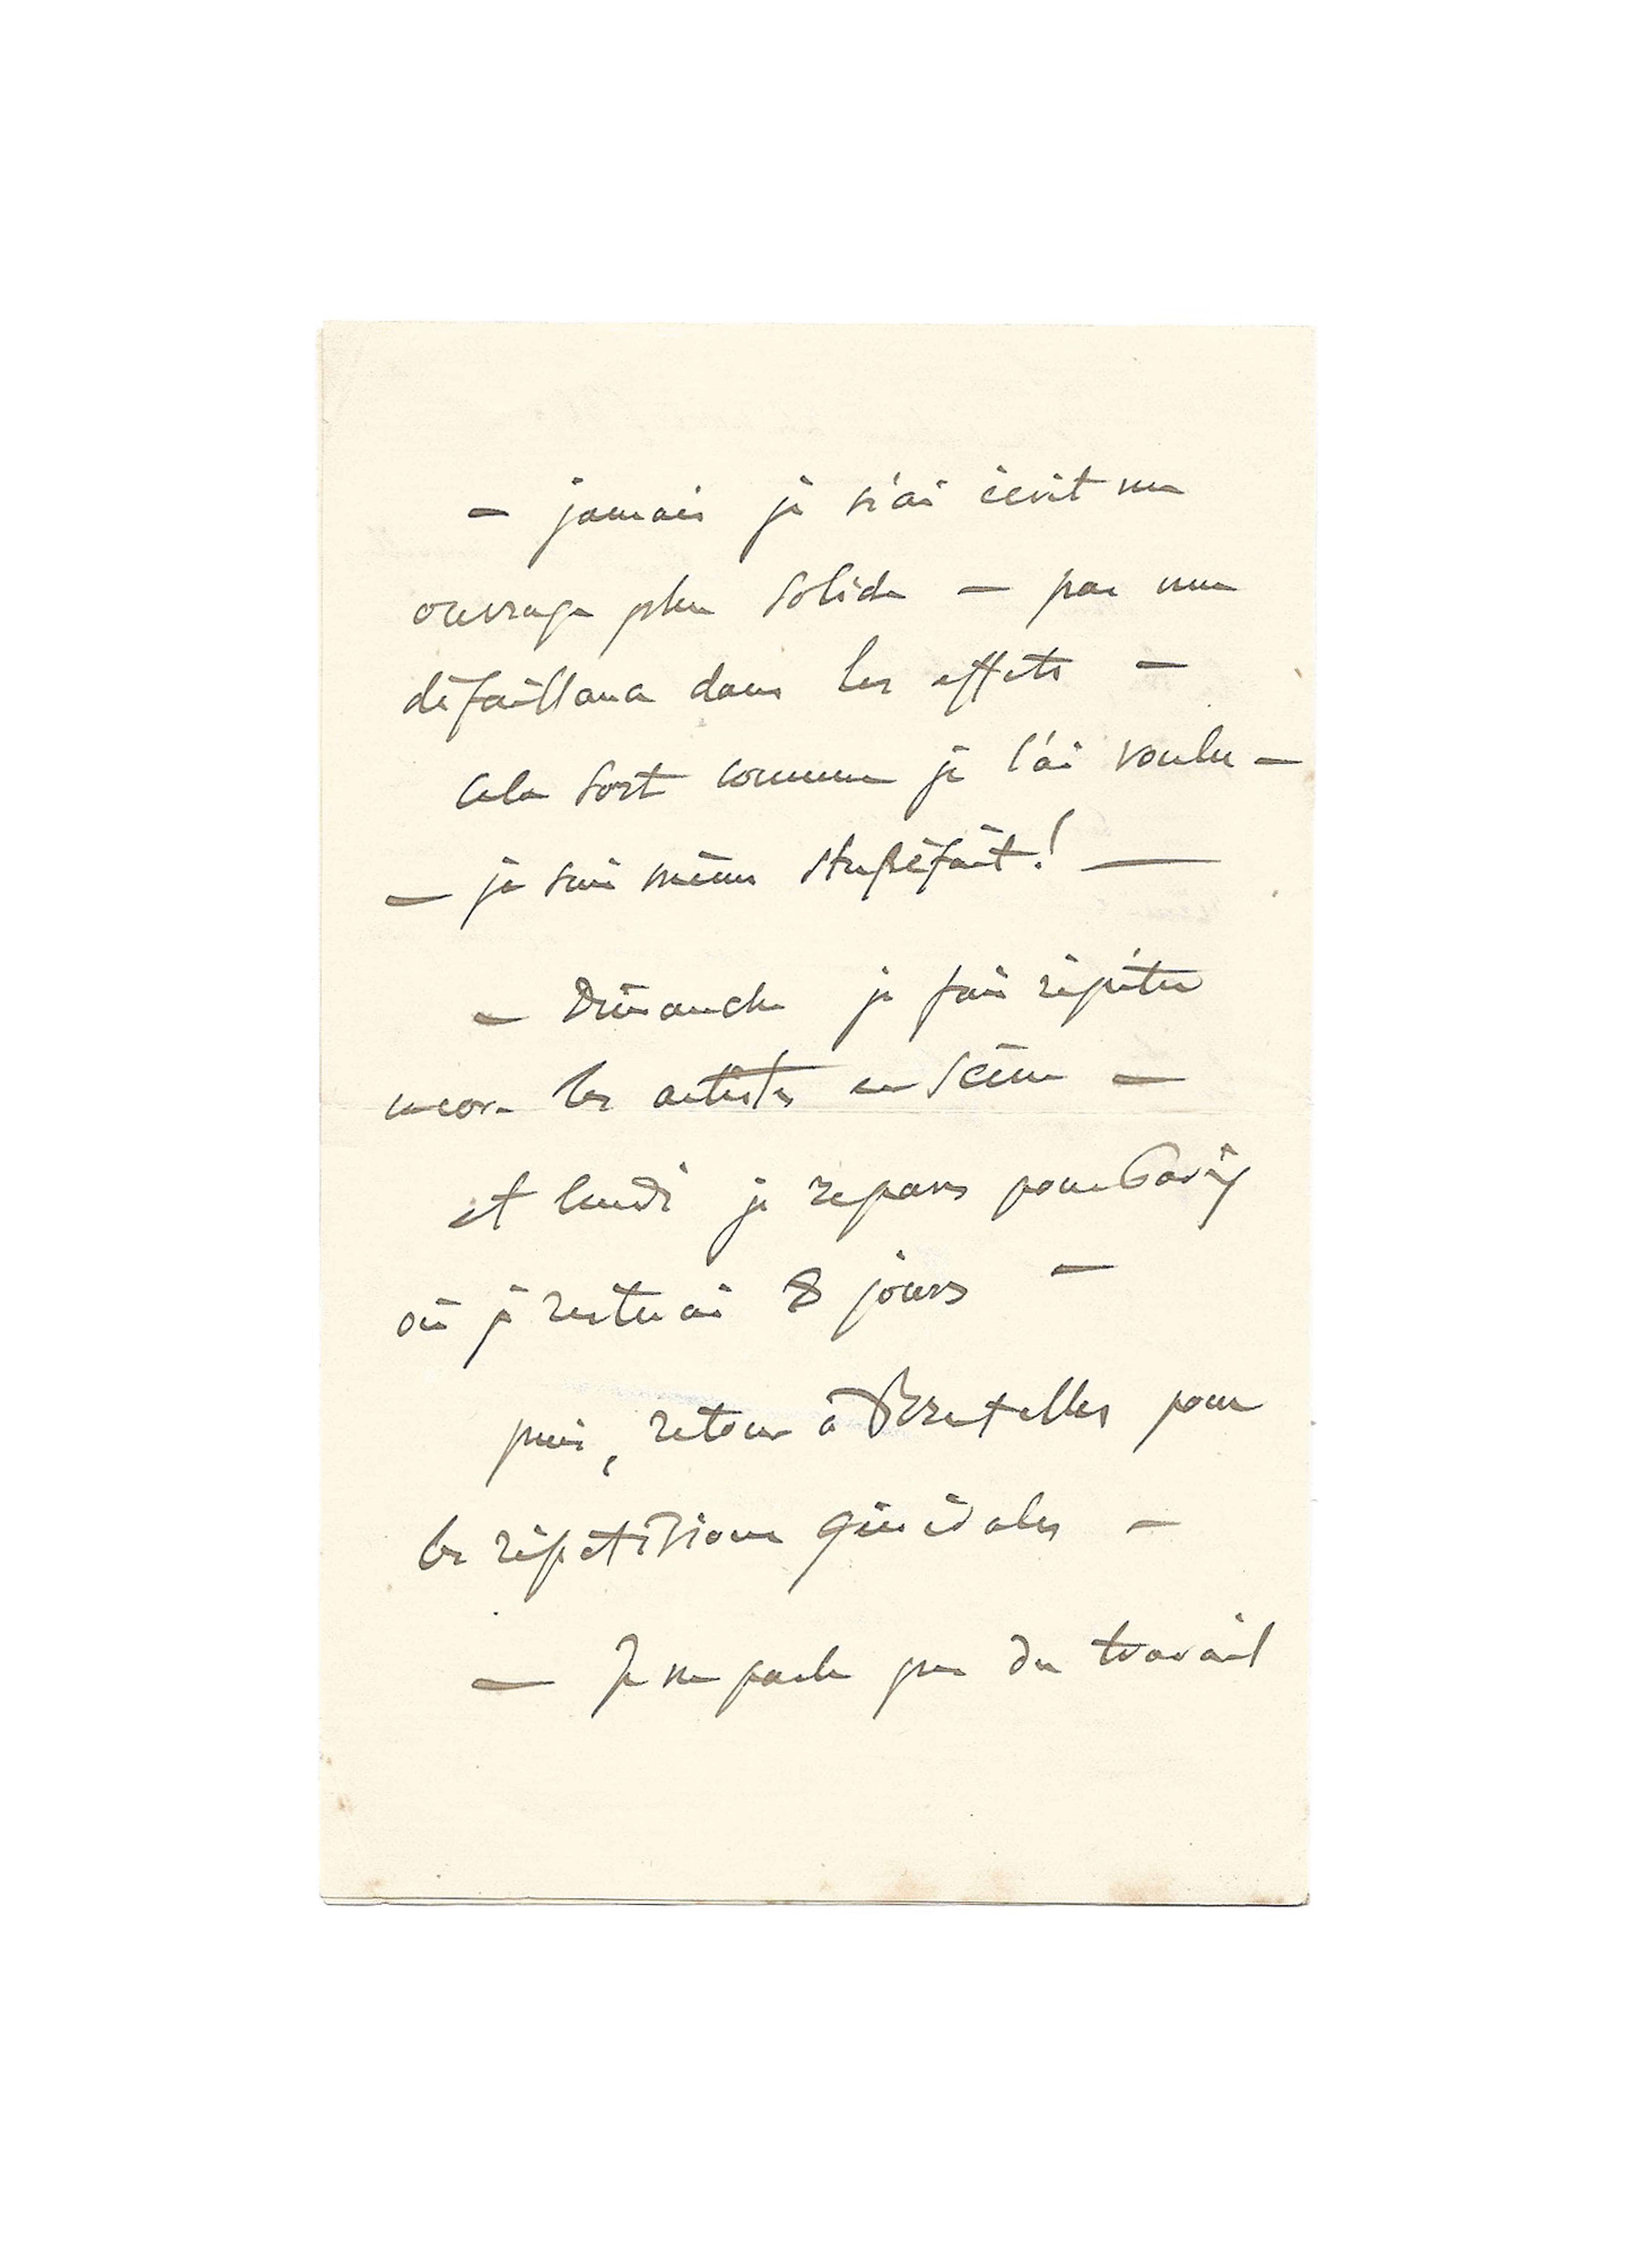 — jamais je n'ai écrit un
ouvrage plus solide — pas une
défaillance dans les effets —
cela sort comme je l'ai voulu —
— je suis même stupéfait! —
— Dimanche je fais répéter
encore les artistes en scène —
et lundi je repars pour Paris
où je resterai 8 jours —
puis, retour à Bruxelles pour
les répétitions générales —
— Je ne parle pas du travail